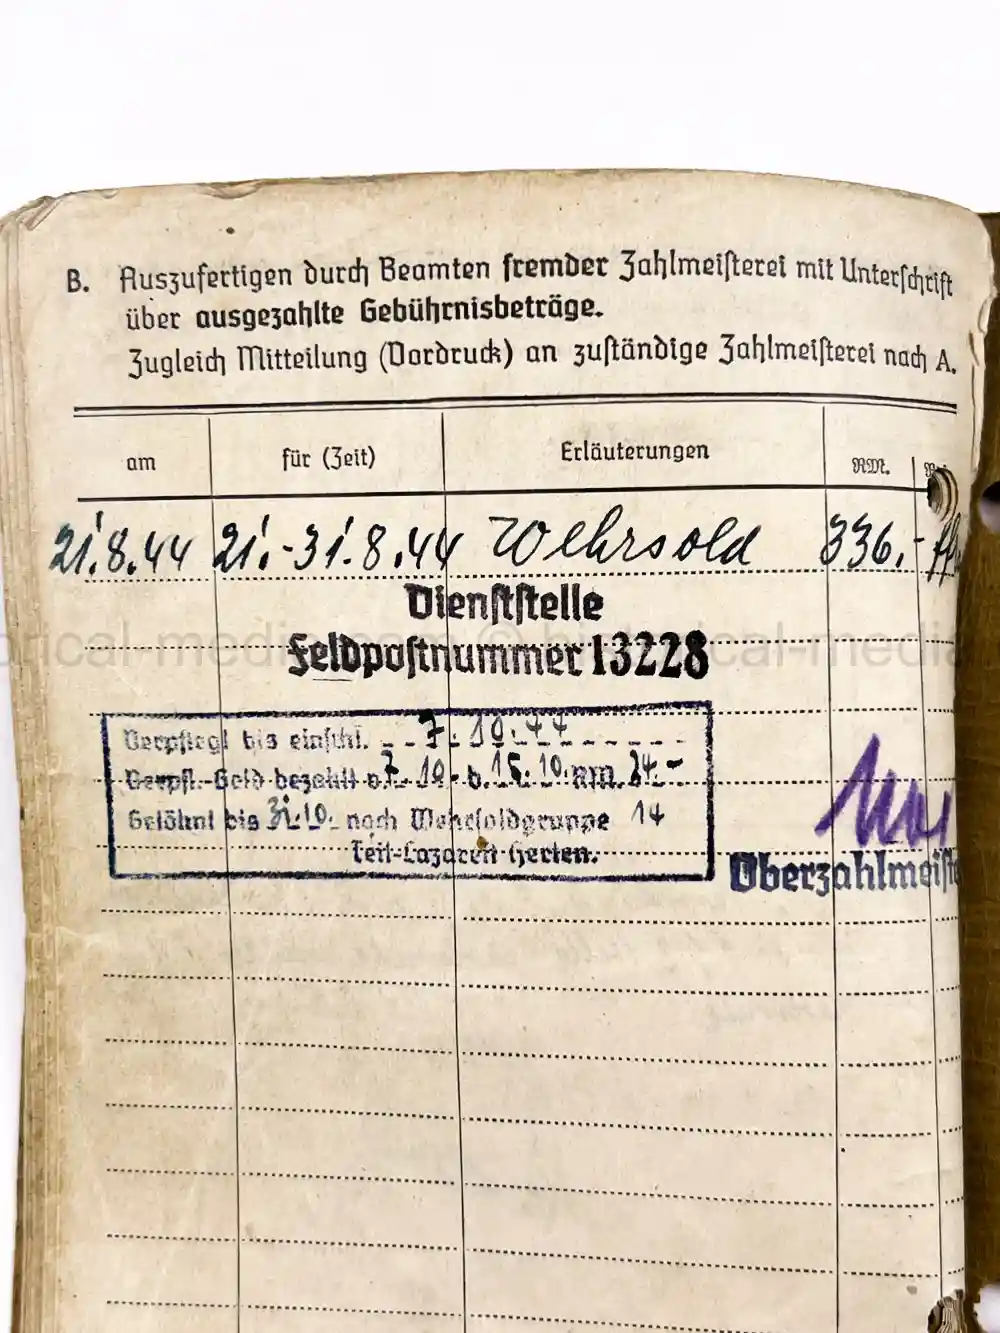 B. Auszufertigen durch Beamten fremder Zahlmeisterei mit Unterschrift
über ausgezahlte Gebührnisbeträge.
Zugleich Mitteilung (Vordruck) an zuständige Zahlmeisterei nach A.
am für (Zeit) Erläuterungen RM.
21.8.44 21.-31.8.44 Wehrsold 336.-
Dienststelle
Feldpostnummer 13228
Verpflegt bis einschl. 7.10.44
Verpfl.-Geld bezahlt v. 7.10. b. 15.10. RM. 24.-
Gelöhnt bis 31.10. nach Wehrsoldgruppe 14
Teil-Lazarett Herten.
Oberzahlmeiste